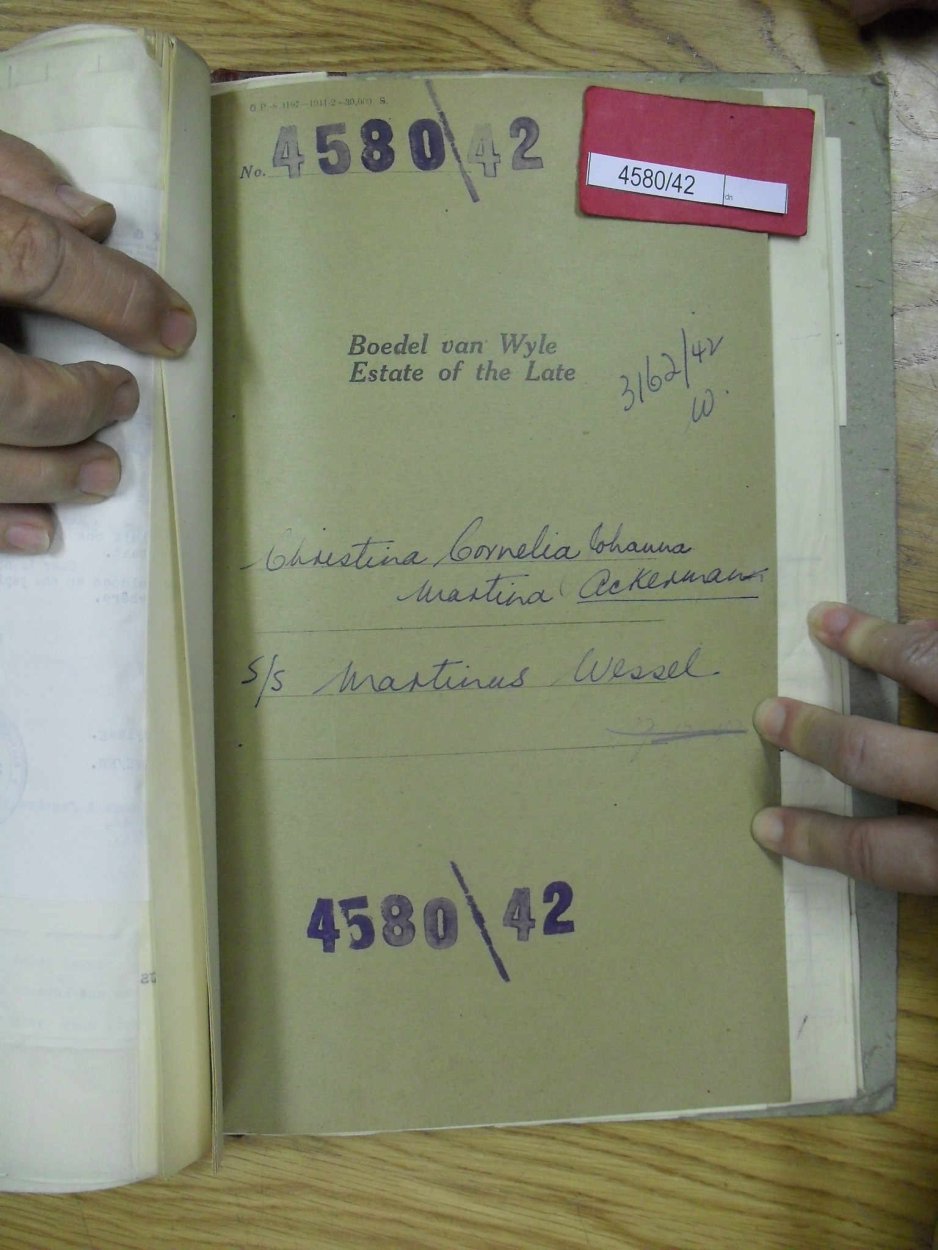 G.P.-S.3167—1941-2—30,000 S.
No. 4580/42
4580/42
dn
Boedel van Wyle
Estate of the Late
3162/42
W.
Christina Cornelia Johanna
Martina Ackerman
S/S Martinus Wessel
4580/42